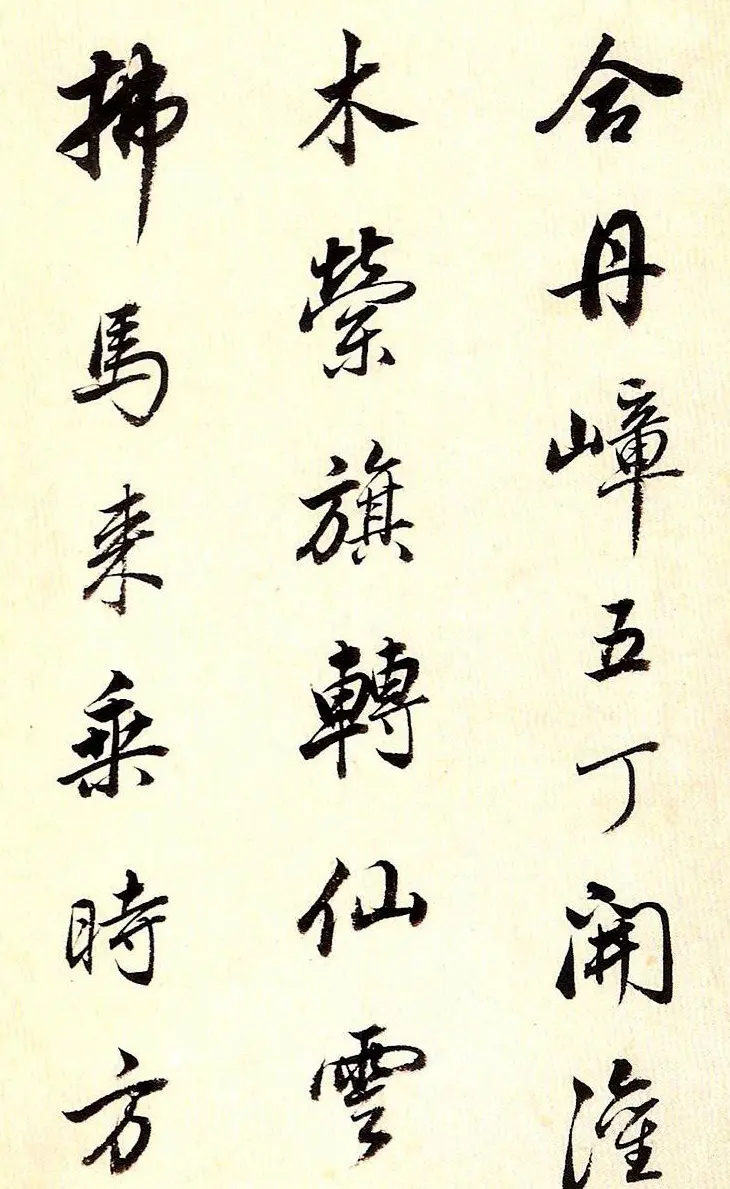 合丹嶂五丁開灌
木縈旗轉仙雲
拂馬来乘時方